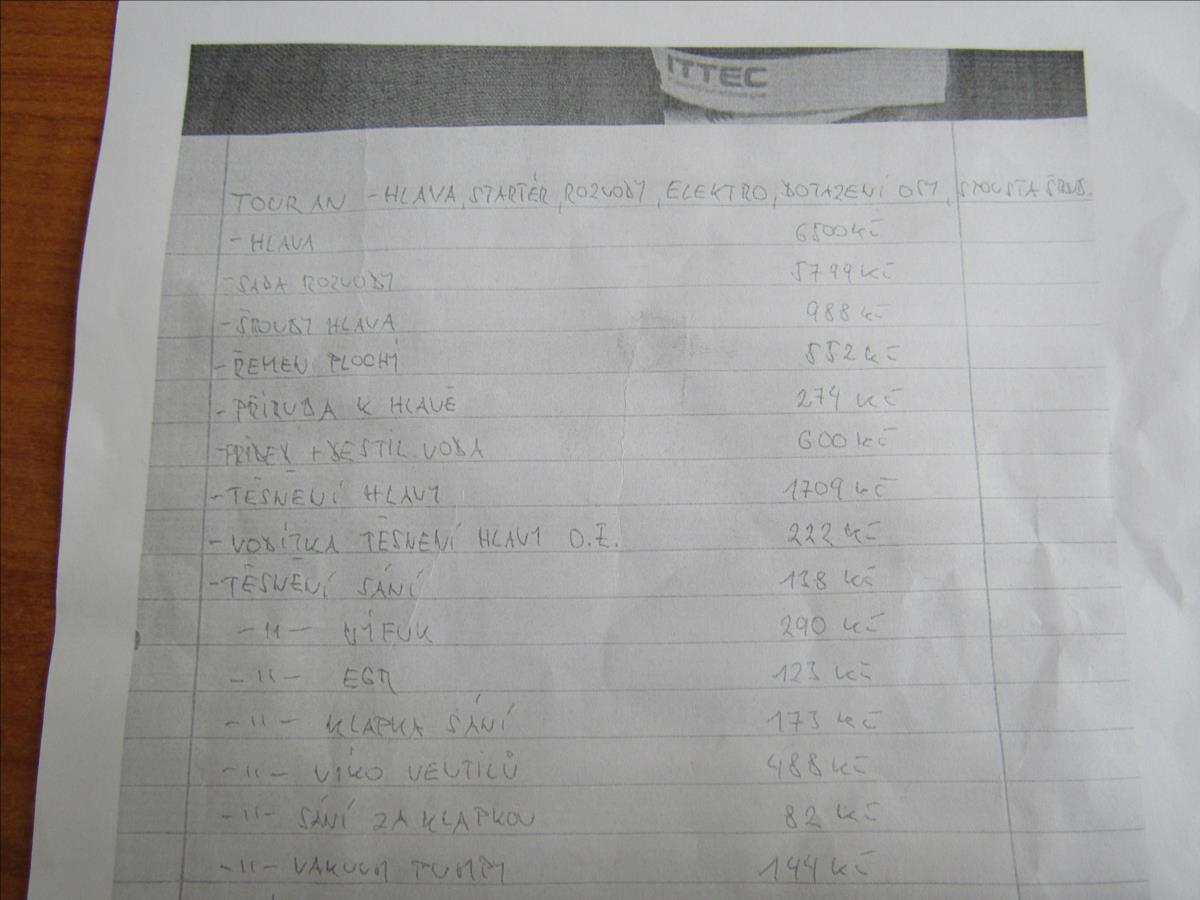 ITTEC
TOURAN - HLAVA, STARTÉR, ROZVODY, ELEKTRO, DOTAŽENÍ OSY, SPOUSTA ŠROUB.
- HLAVA 6500 Kč
- SADA ROZVODY 5799 Kč
- ŠROUBY HLAVA 988 Kč
- ŘEMEN PLOCHÝ 552 Kč
- PŘÍRUBA K HLAVĚ 274 Kč
- FRIDEX + DESTIL. VODA 600 Kč
- TĚSNĚNÍ HLAVY 1709 Kč
- VODÍTKA TĚSNĚNÍ HLAVY O.E. 222 Kč
- TĚSNĚNÍ SÁNÍ 138 Kč
-11- VÝFUK 290 Kč
-11- EGR 123 Kč
-11- KLAPKA SÁNÍ 173 Kč
-11- VÍKO VENTILŮ 488 Kč
-11- SÁNÍ ZA KLAPKOU 82 Kč
-11- VAKUUM PUMPY 144 Kč